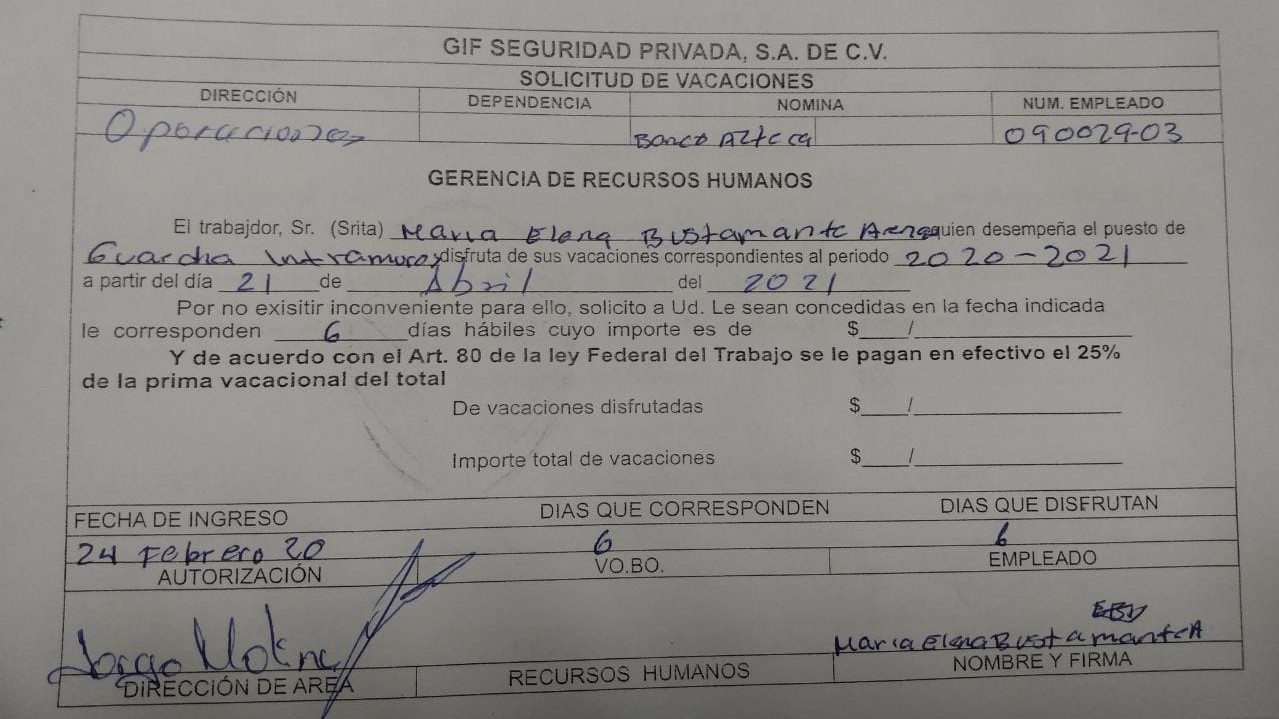 GIF SEGURIDAD PRIVADA, S.A. DE C.V.
SOLICITUD DE VACACIONES
DIRECCIÓN DEPENDENCIA NOMINA NUM. EMPLEADO
Operaciones Banco Azteca 09002903
GERENCIA DE RECURSOS HUMANOS
El trabajdor, Sr. (Srita) Maria Elena Bustamante quien desempeña el puesto de
Guardia Intramuros disfruta de sus vacaciones correspondientes al periodo 2020-2021
a partir del día 21 de Abril del 2021
Por no exisitir inconveniente para ello, solicito a Ud. Le sean concedidas en la fecha indicada
le corresponden 6 días hábiles cuyo importe es de $ /
Y de acuerdo con el Art. 80 de la ley Federal del Trabajo se le pagan en efectivo el 25%
de la prima vacacional del total
De vacaciones disfrutadas $ /
Importe total de vacaciones $ /
FECHA DE INGRESO DIAS QUE CORRESPONDEN DIAS QUE DISFRUTAN
24 Febrero 20 6 6
AUTORIZACIÓN VO.BO. EMPLEADO
Jorge Molina Maria Elena Bustamante A
DIRECCIÓN DE AREA RECURSOS HUMANOS NOMBRE Y FIRMA